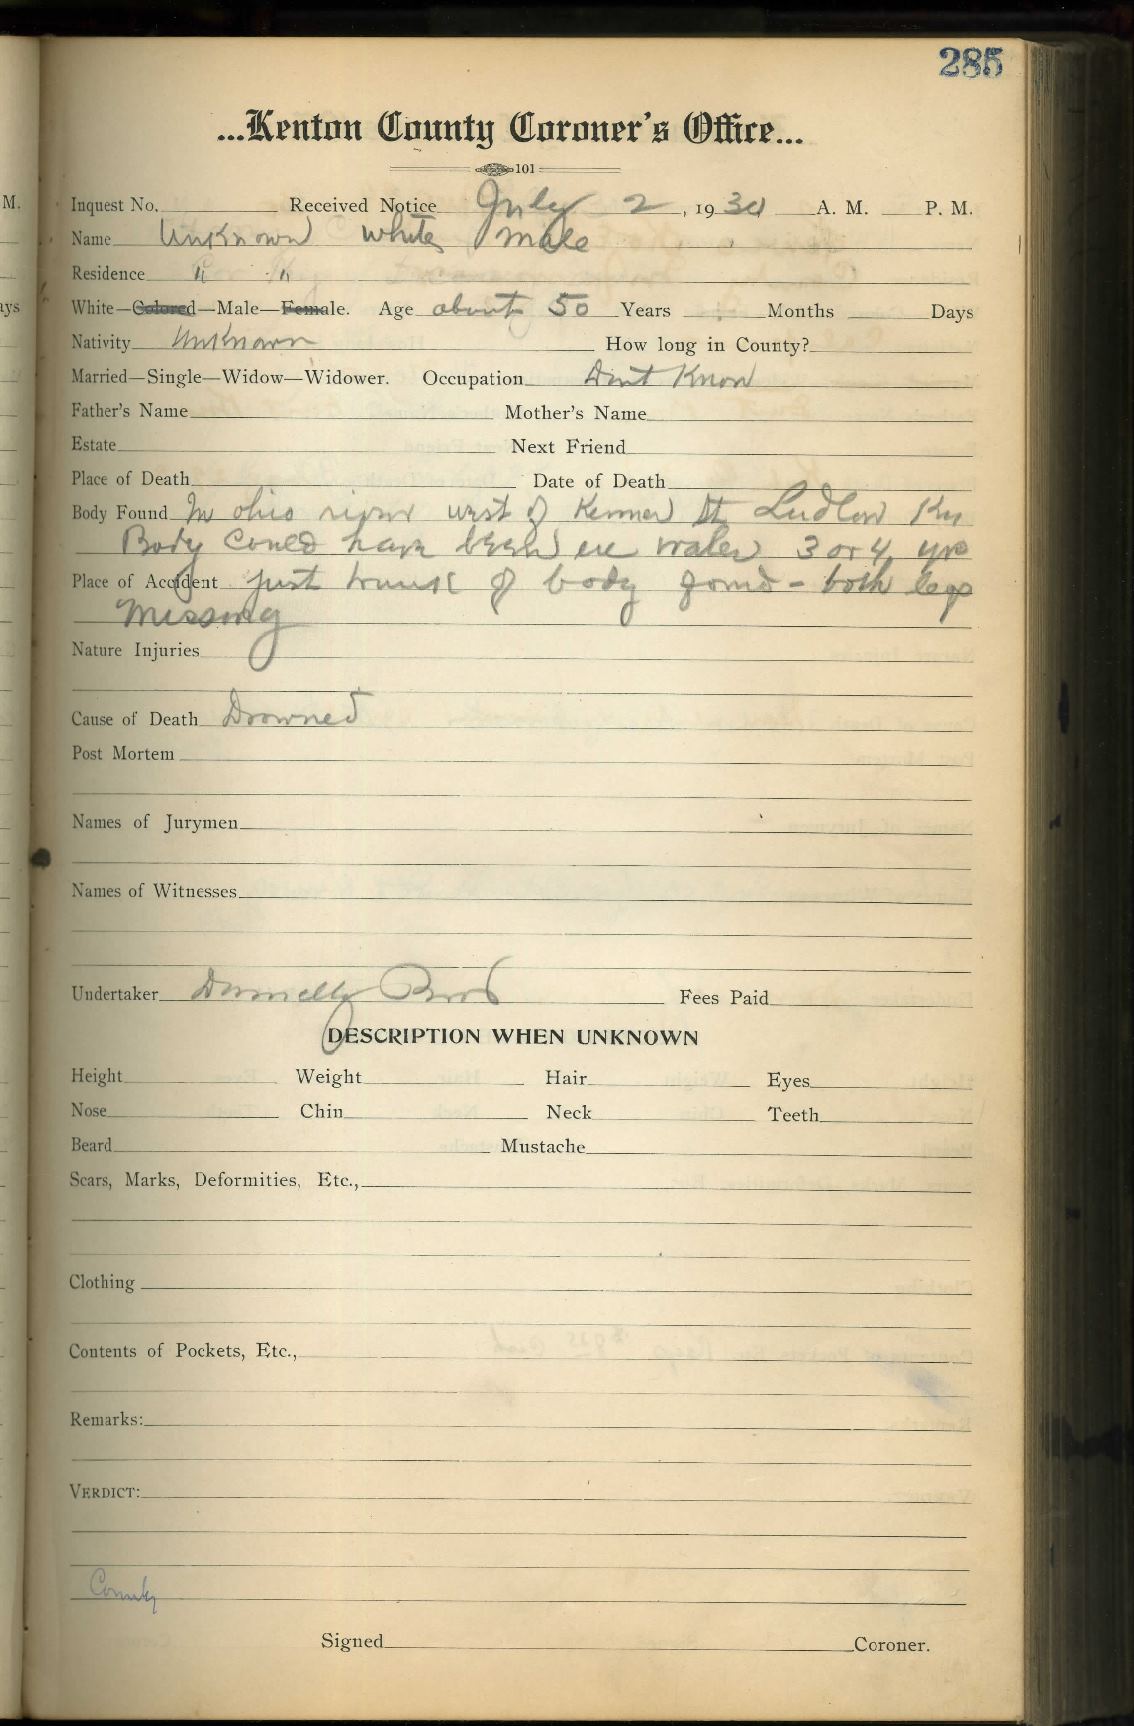 285
...Kenton County Coroner's Office...
101
M. Inquest No. Received Notice July 2, 1930 A. M. P. M.
Name Unknown white male
Residence " "
ays White—Colored—Male—Female. Age about 50 Years Months Days
Nativity Unknown How long in County?
Married—Single—Widow—Widower. Occupation Dont Know
Father's Name Mother's Name
Estate Next Friend
Place of Death Date of Death
Body Found In ohio river west of Kenner St Ludlow Ky
Body could have been in water 3 or 4 yrs
Place of Accident just trunk of body found - both legs
missing
Nature Injuries
Cause of Death Drowned
Post Mortem
Names of Jurymen
Names of Witnesses
Undertaker Donnelly Bros Fees Paid
DESCRIPTION WHEN UNKNOWN
Height Weight Hair Eyes
Nose Chin Neck Teeth
Beard Mustache
Scars, Marks, Deformities, Etc.,
Clothing
Contents of Pockets, Etc.,
Remarks:
VERDICT:
County
Signed Coroner.